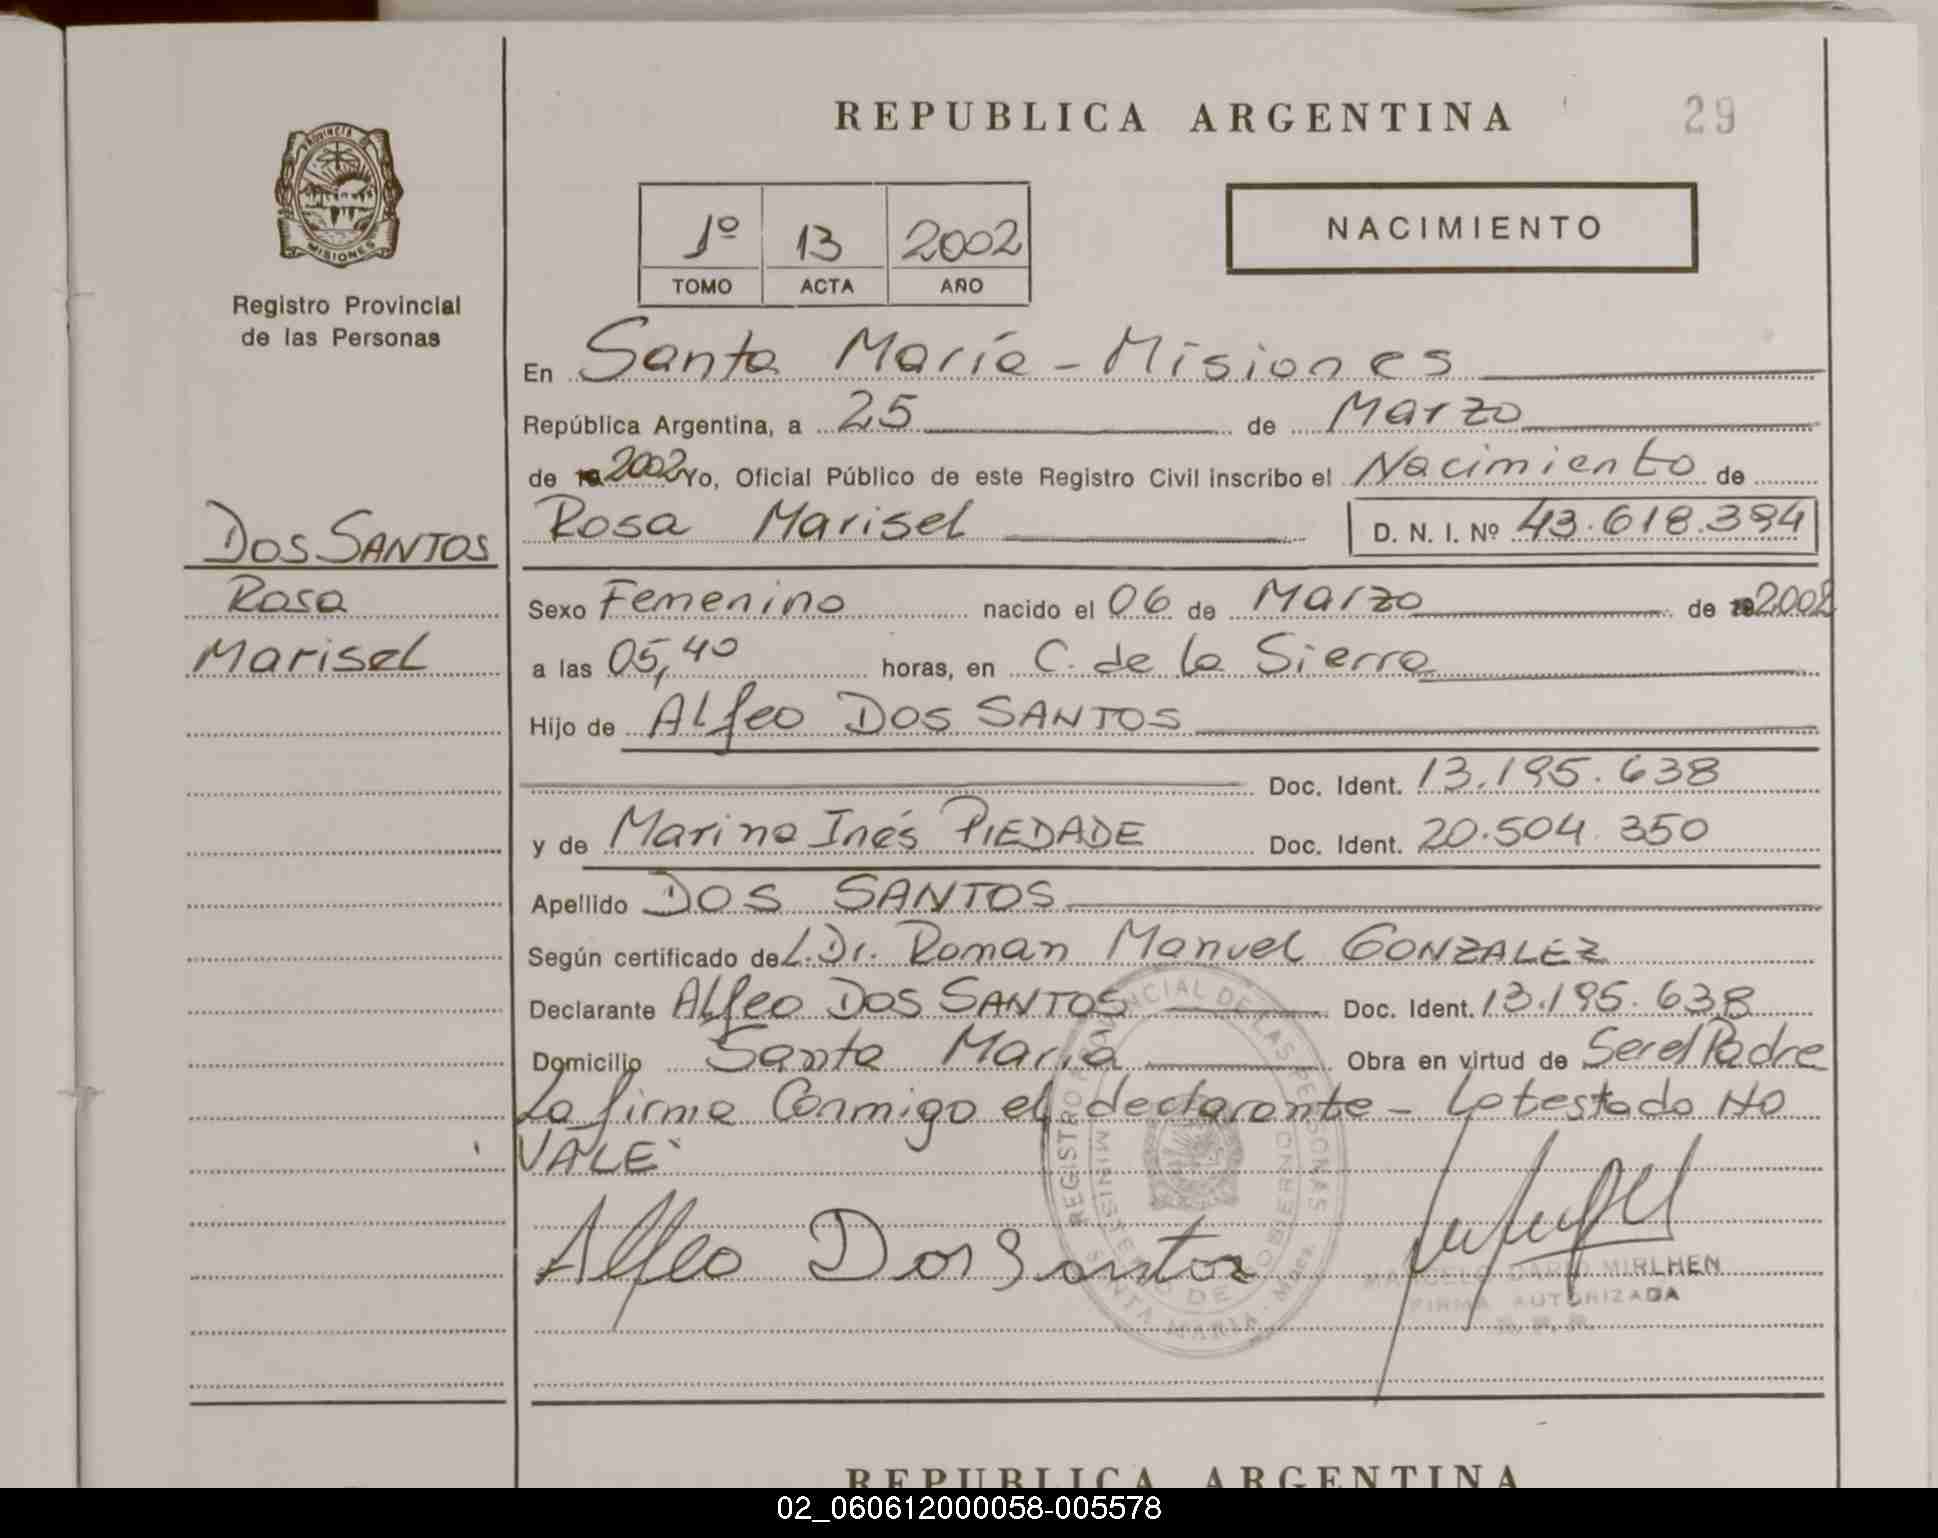 REPUBLICA ARGENTINA
29
PROVINCIA DE
MISIONES
Registro Provincial
de las Personas
1º 13 2002
TOMO ACTA AÑO
NACIMIENTO
En Santa María - Misiones
República Argentina, a 25 de Marzo
de 2002 Yo, Oficial Público de este Registro Civil inscribo el Nacimiento de
Rosa Marisel D. N. I. Nº 43.618.394
DOS SANTOS
Rosa
Marisel
Sexo Femenino nacido el 06 de Marzo de 2002
a las 05,40 horas, en C. de la Sierra
Hijo de Alfeo DOS SANTOS
Doc. Ident. 13.195.638
y de Marina Inés PIEDADE Doc. Ident. 20.504.350
Apellido DOS SANTOS
Según certificado del.Dr. Roman Manuel GONZALEZ
Declarante Alfeo DOS SANTOS Doc. Ident. 13.195.638
Domicilio Santa María Obra en virtud de Ser el Padre
La firma Conmigo el declarante - Lo testado NO
VALE
Alfeo Dos Santos
REGISTRO PROVINCIAL DE LAS PERSONAS
MINISTERIO DE GOBIERNO
SANTA MARIA - Mnes.
MARCELO DARIO MIRLHEN
FIRMA AUTORIZADA
R. P. P.
REPUBLICA ARGENTINA
02_060612000058-005578